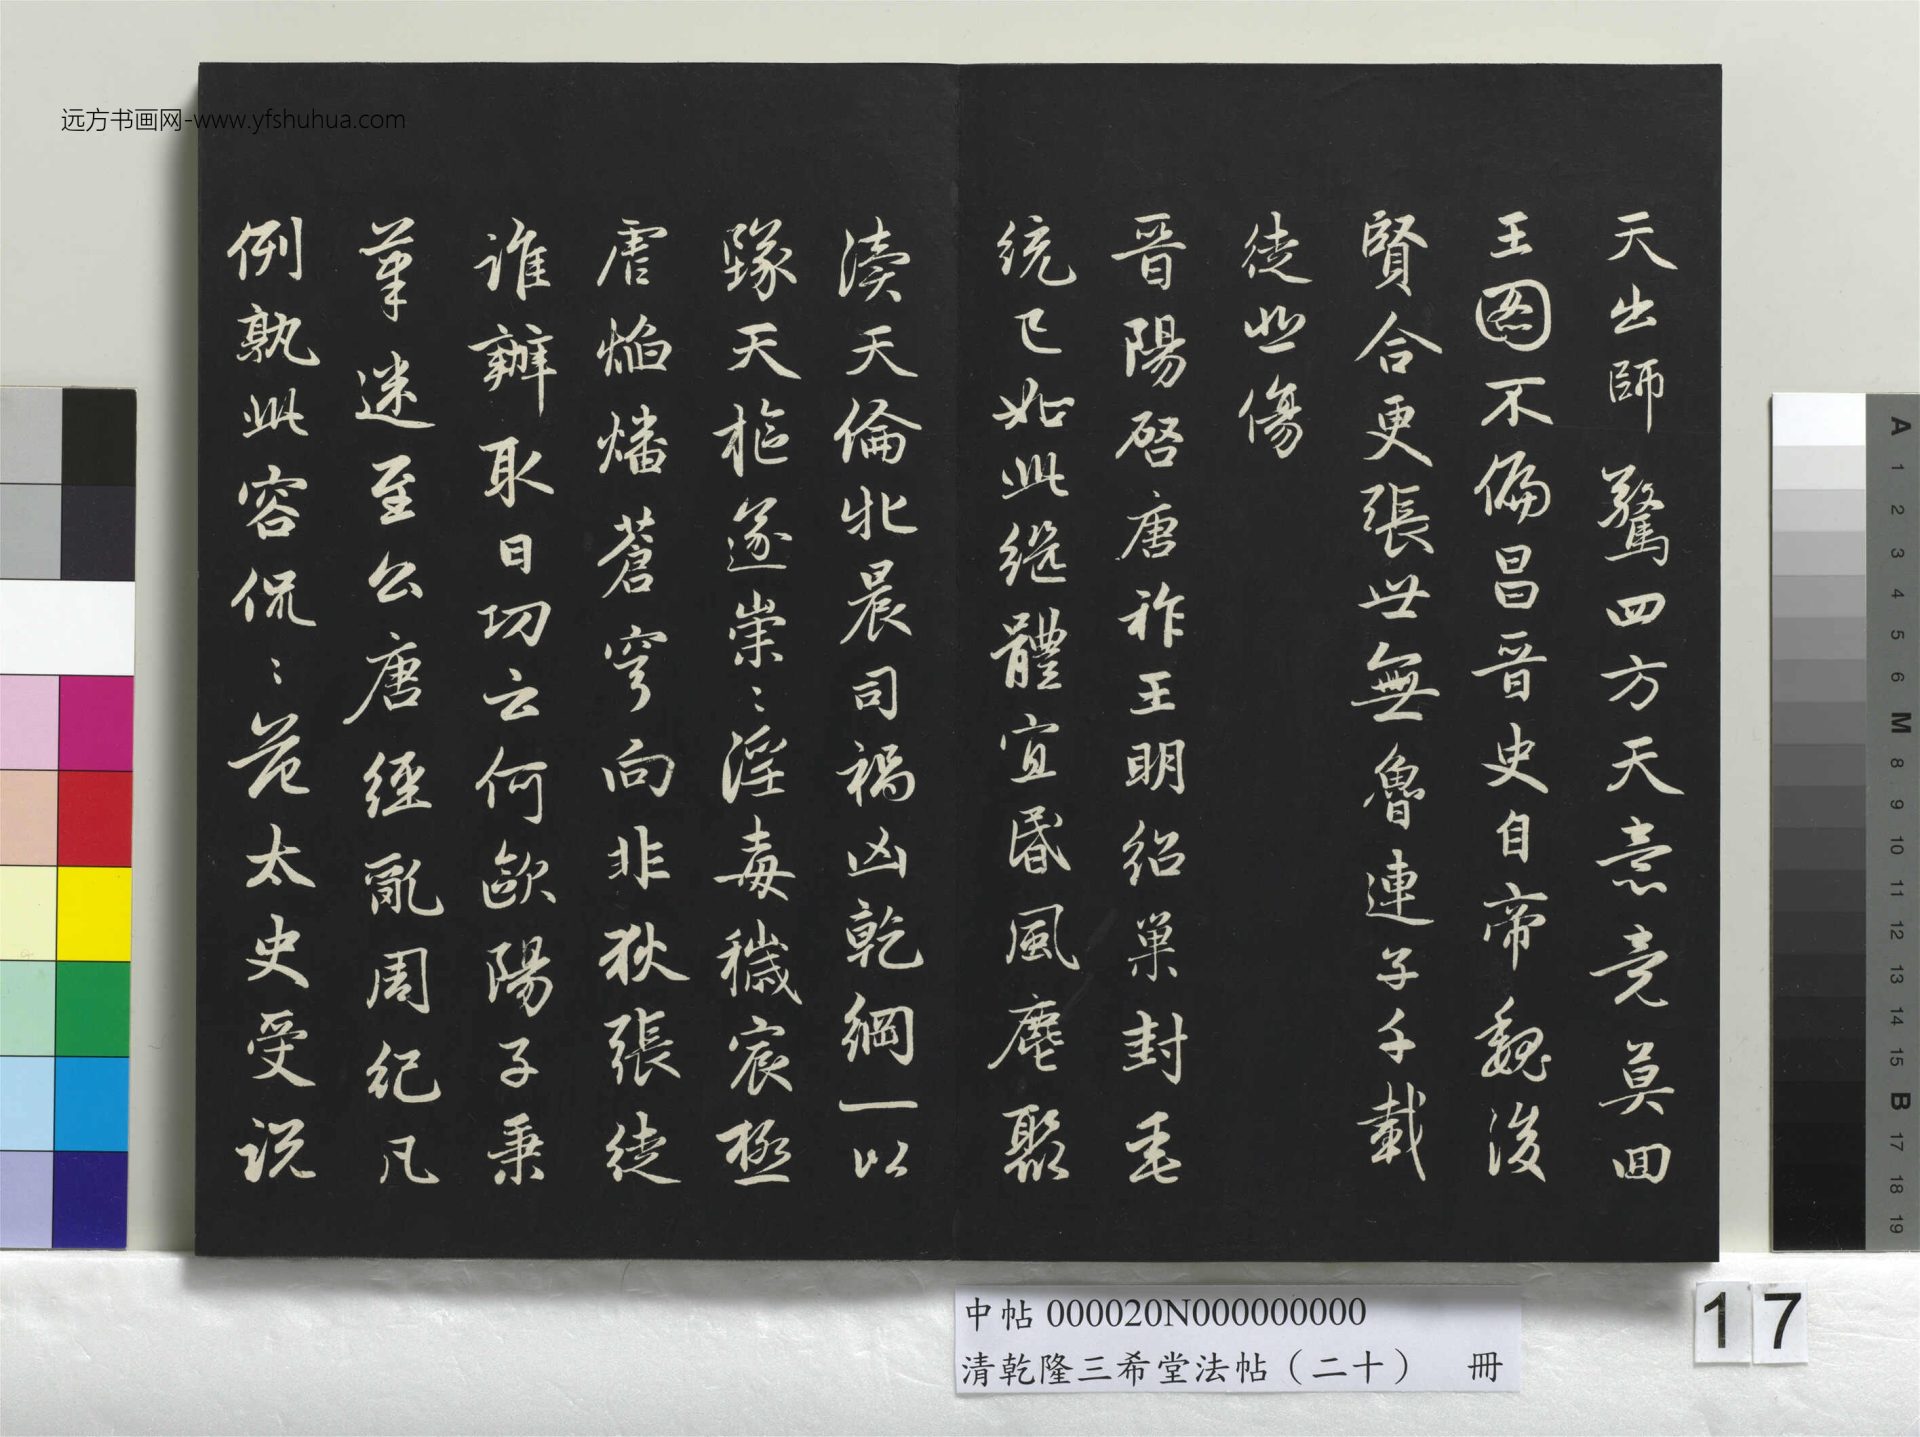 天出師驚四方天意竟莫回
王圖不偏昌晉史自帝魏後
賢合更張世無魯連子千載
徒悲傷
晉陽啓唐祚王明紹巢封垂
統已如此繼體宜昏風麀聚
瀆天倫牝晨司禍凶乾綱一以
墜天樞遂崇〻淫毒穢宸極
虐焰燔蒼穹向非狄張徒
誰辦取日功云何歐陽子秉
筆迷至公唐經亂周紀凡
例孰此容侃〻范太史受說
远方书画网-www.yfshuhua.com
中帖 000020N000000000
清乾隆三希堂法帖（二十） 冊
17
A 1 2 3 4 5 6 M 8 9 10 11 12 13 14 15 B 17 18 19